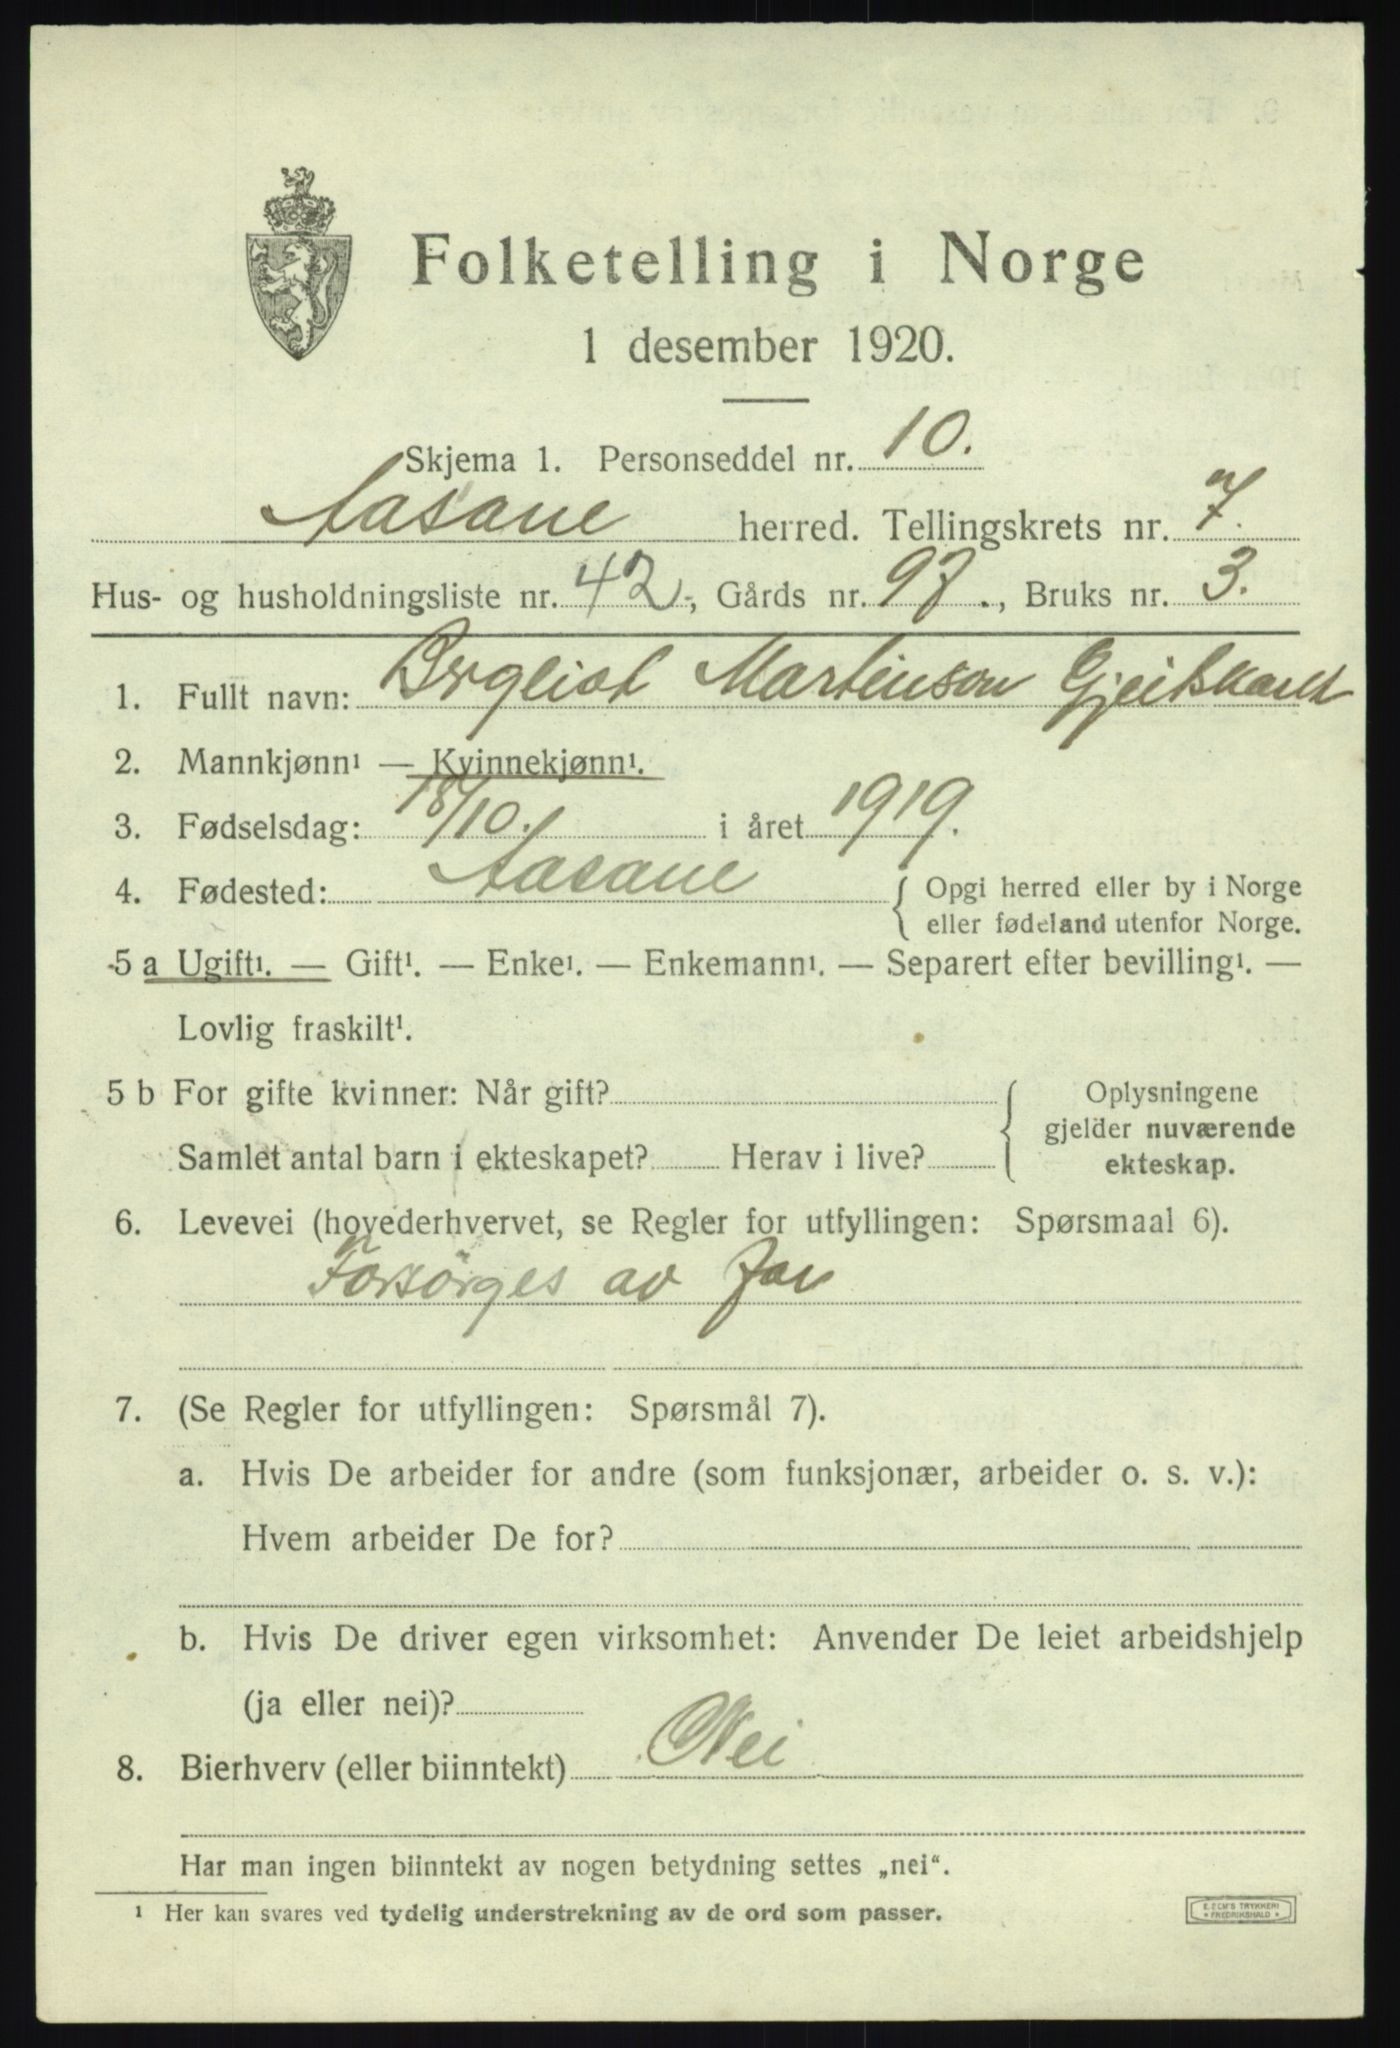 Folketelling i Norge
1 desember 1920.
Skjema 1. Personseddel nr. 10.
Aasane herred. Tellingskrets nr. 7.
Hus- og husholdningsliste nr. 42, Gårds nr. 97., Bruks nr. 3.
1. Fullt navn: Bergliot Martinson Gjeitskard
2. Mannkjønn¹ — Kvinnekjønn¹.
3. Fødselsdag: 18/10. i året 1919.
4. Fødested: Aasane { Opgi herred eller by i Norge
eller fødeland utenfor Norge.
5 a Ugift¹. — Gift¹. — Enke¹. — Enkemann¹. — Separert efter bevilling¹. —
Lovlig fraskilt¹.
5 b For gifte kvinner: Når gift? { Oplysningene
gjelder nuværende
Samlet antal barn i ekteskapet? Herav i live? ekteskap.
6. Levevei (hovederhvervet, se Regler for utfyllingen: Spørsmaal 6).
Forsørges av far
7. (Se Regler for utfyllingen: Spørsmål 7).
a. Hvis De arbeider for andre (som funksjonær, arbeider o. s. v.):
Hvem arbeider De for?
b. Hvis De driver egen virksomhet: Anvender De leiet arbeidshjelp
(ja eller nei)?
8. Bierhverv (eller biinntekt) Nei
Har man ingen biinntekt av nogen betydning settes „nei“.
¹ Her kan svares ved tydelig understrekning av de ord som passer.
TRYKKERI
FREDRIKSHALD